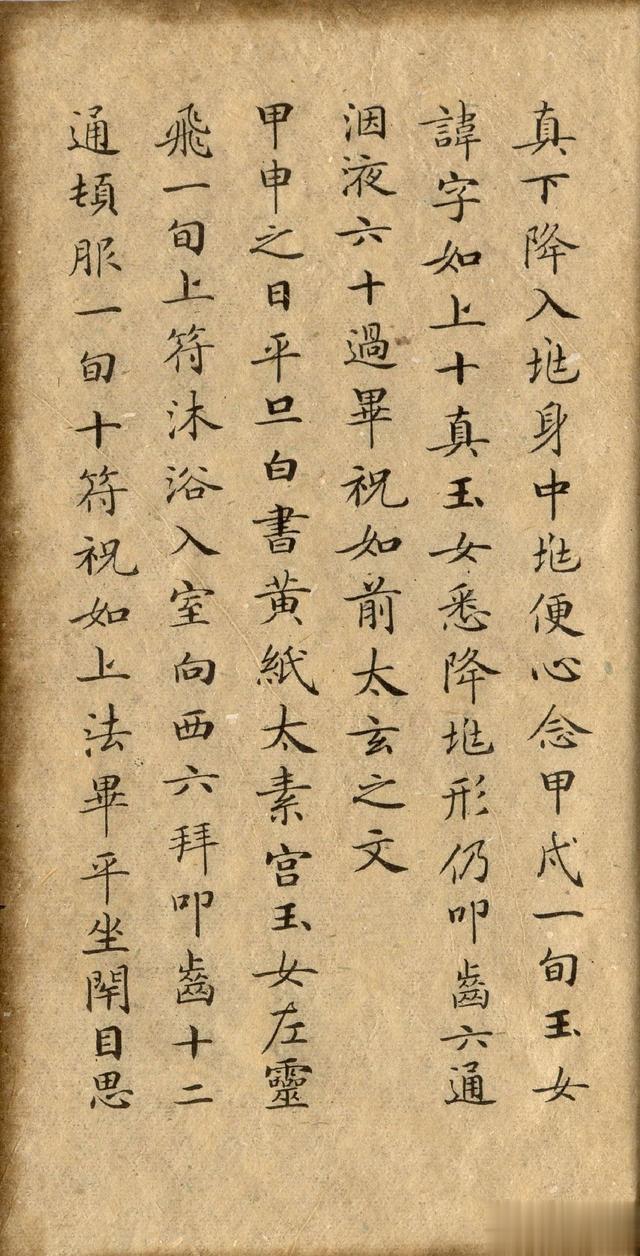 真下降入兆身中兆便心念甲戌一旬玉女
諱字如上十真玉女悉降兆形仍叩齒六通
洇液六十過畢祝如前太玄之文
甲申之日平旦白書黃紙太素宮玉女左靈
飛一旬上符沐浴入室向西六拜叩齒十二
通頓服一旬十符祝如上法畢平坐閇目思